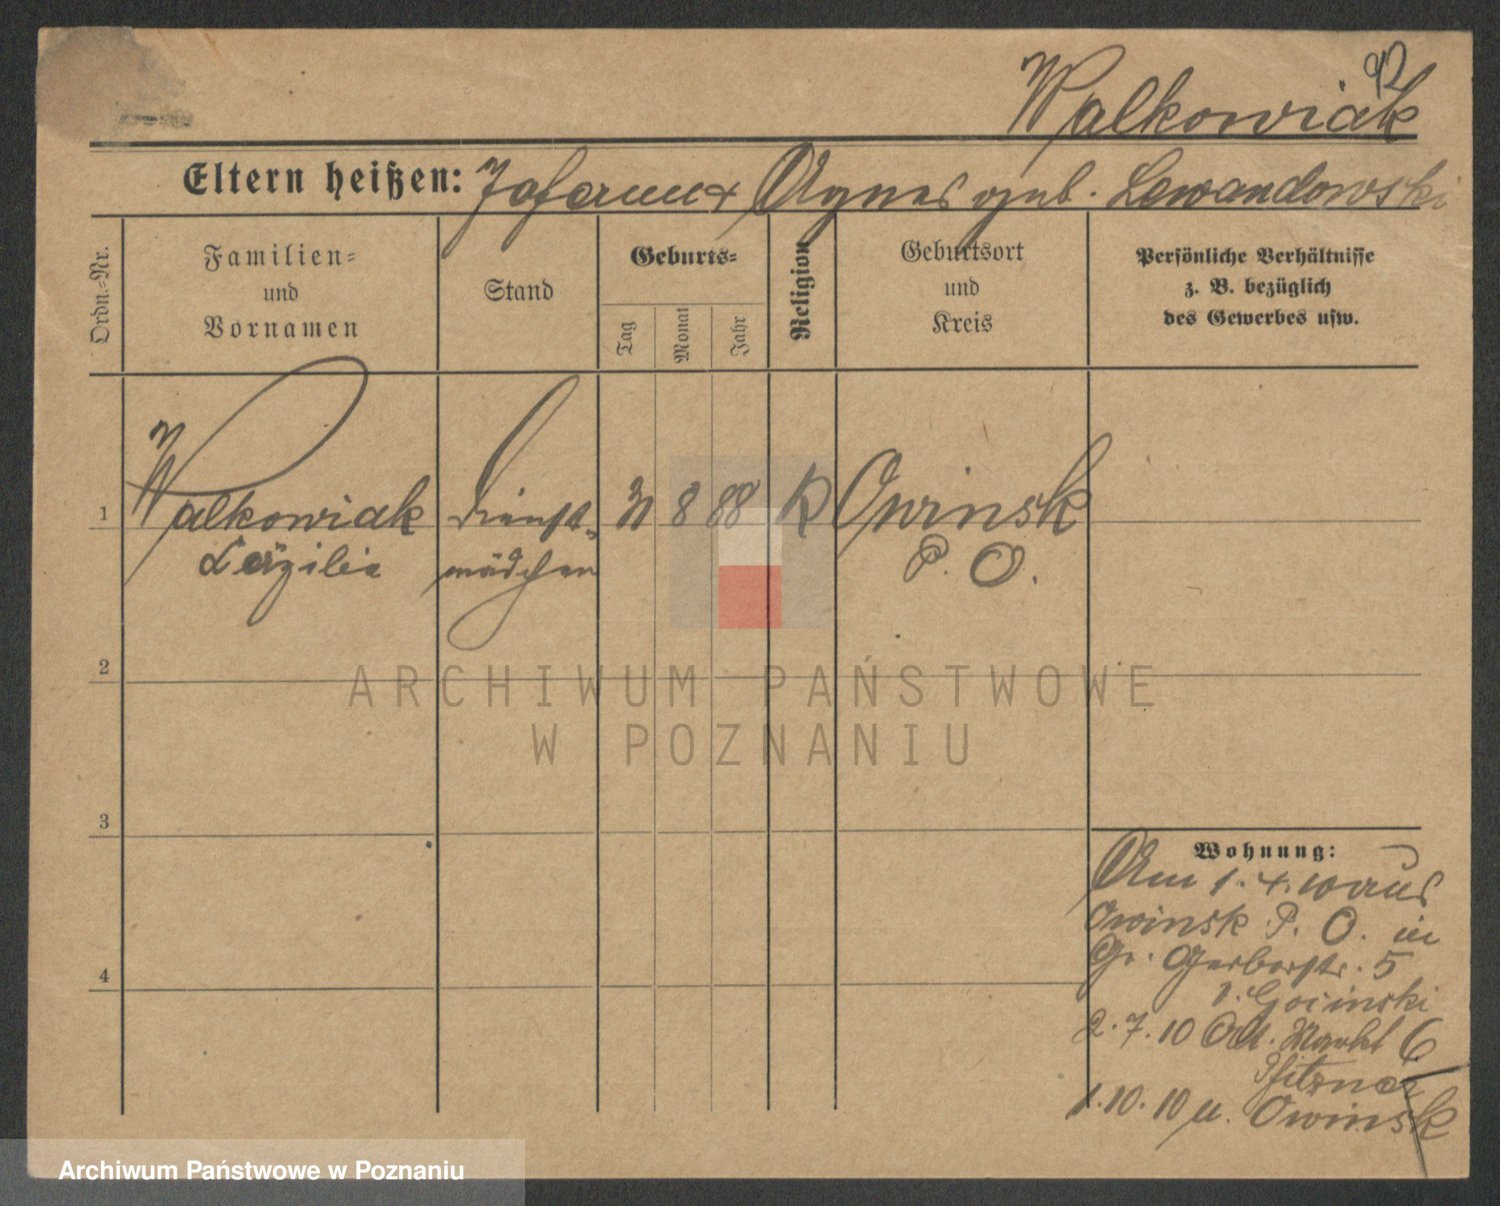 92
Walkowiak
Eltern heißen: Johann & Agnes geb. Lewandowski
Ordn.-Nr.
Familien-
und
Vornamen
Stand
Geburts-
Tag
Monat
Jahr
Religion
Geburtsort
und
Kreis
Persönliche Verhältnisse
z. B. bezüglich
des Gewerbes usw.
1 Walkowiak Dienst- 31 8 88 K Owinsk
Cäzilie mädchen P. O.
2
3
4
Wohnung:
Am 1.4.10 aus
Owinsk P. O. in
Gr. Gerberstr. 5
2.7.10 Alt. Markt 6
Pfitzner
1.10.10 n. Owinsk
ARCHIWUM PAŃSTWOWE
W POZNANIU
Archiwum Państwowe w Poznaniu